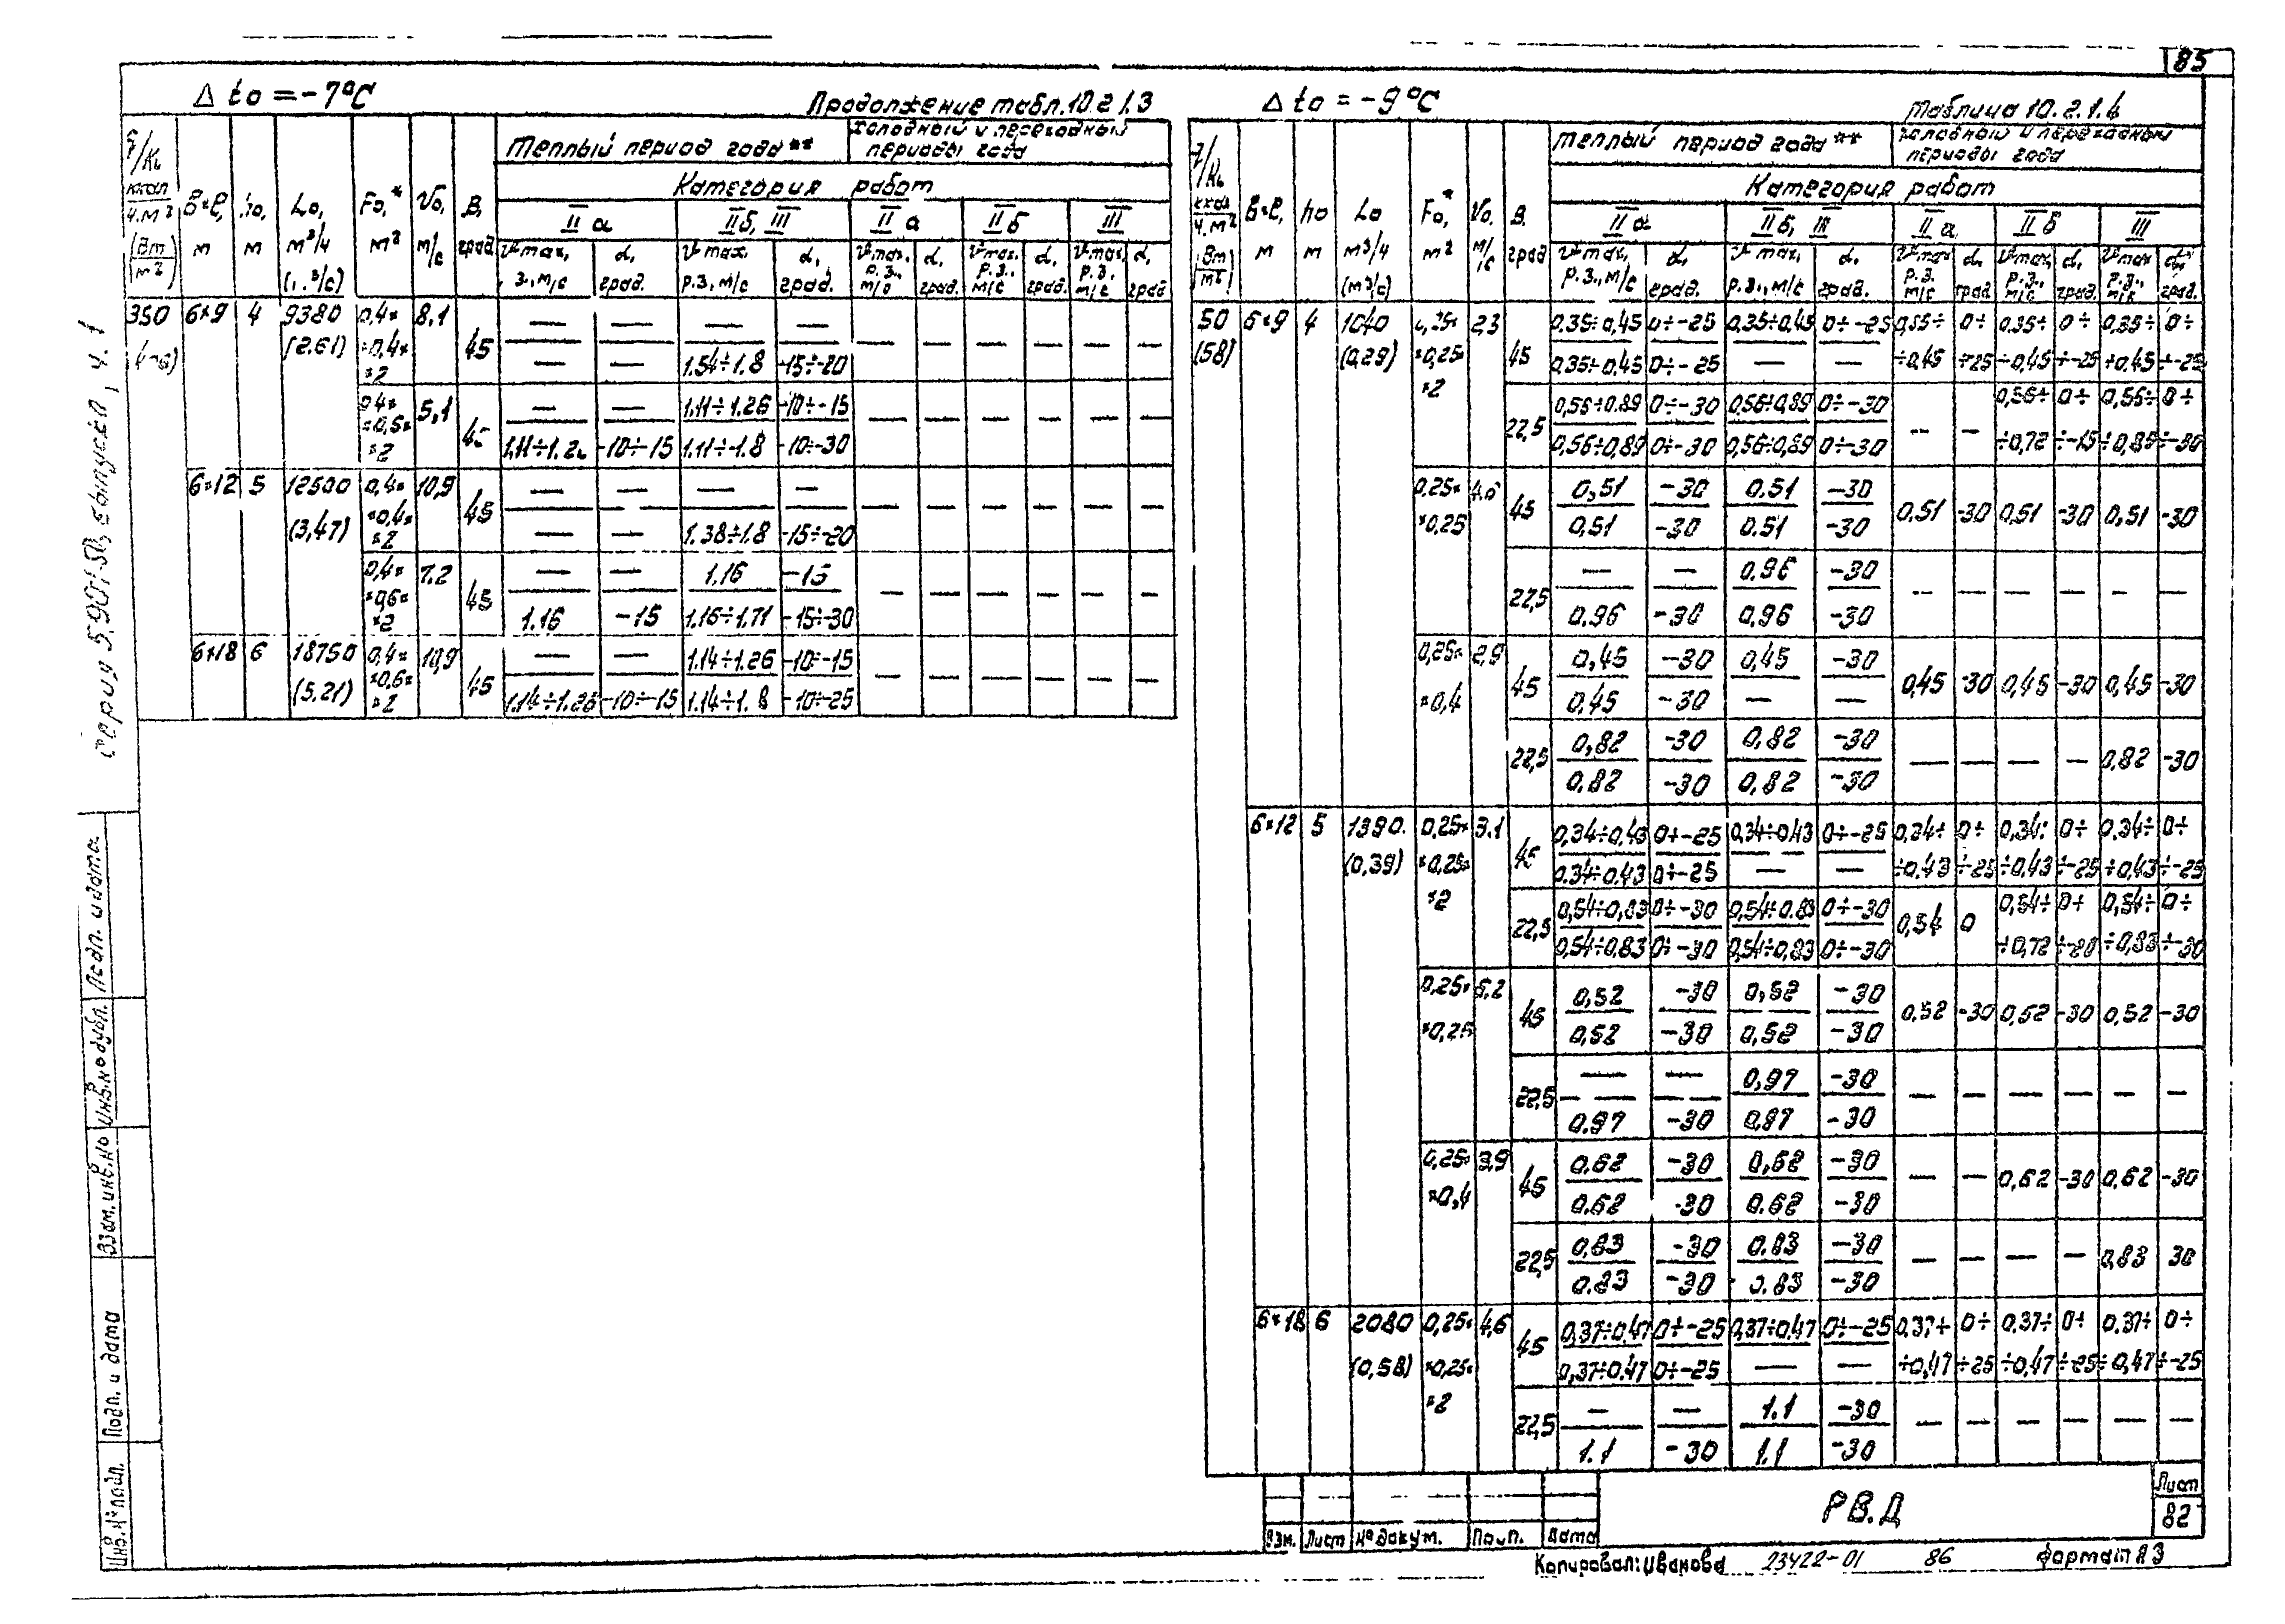 85
Δ to = -7°C
Продолжение табл. 10.2.1.3
q/Кв ккал/ч.м² (Вт/м²) | B×ℓ, м | ho, м | Lo, м³/ч | Fo,* м² | Vo, м/с | β, град | Теплый период года** | холодный и переходный периоды года
Категория работ
IIа | IIб, III | IIа | IIб | III
Vmax, р.з., м/с | α, град. | Vmax, р.з., м/с | α, град. | Vmax, р.з., м/с | α, град. | Vmax, р.з., м/с | α, град. | Vmax, р.з., м/с | α, град
350 | 6×9 | 4 | 9380 (2.61) | 0,4×0,4×2 | 8,1 | 45 | — | — | — | —
— | — | 1.54÷1.8 | -15÷-20
0,4×0,6×2 | 5,1 | 45 | — | — | 1.11÷1.26 | -10÷-15 | — | — | — | — | — | —
-10÷-15 | 1.11÷1.8 | -10÷-30
6×12 | 5 | 12500 (3,47) | 0,4×0,4×2 | 10,9 | 45 | — | — | — | — | — | — | — | — | — | —
— | — | 1.38÷1.8 | -15÷-20
0,4×0,6×2 | 7.2 | 45 | — | — | 1,16 | -15 | — | — | — | — | — | —
1.16 | -15 | 1.16÷1.71 | -15÷-30
6×18 | 6 | 18750 (5.21) | 0,4×0,6×2 | 10,9 | 45 | — | — | 1.14÷1.26 | -10÷-15 | — | — | — | — | — | —
1.14÷1.26 | -10÷-15 | 1.14÷1.8 | -10÷-25
Δ to = -9°C
Таблица 10.2.1.4
q/Кв ккал/ч.м² (Вт/м²) | B×ℓ, м | ho м | Lo м³/ч (м³/с) | Fo,* м² | Vo, м/с | β, град | Теплый период года** | холодный и переходный периоды года
Категория работ
IIа | IIб, III | IIа | IIб | III
Vmax, р.з., м/с | α, град. | Vmax, р.з., м/с | α, град. | Vmax р.з. м/с | α, град | Vmax, р.з., м/с | α, град. | Vmax р.з., м/с | α, град.
50 (58) | 6×9 | 4 | 1040 (0,29) | 0,25×0,25×2 | 2,3 | 45 | 0,35÷0,45 | 0÷-25 | 0,35÷0,45 | 0÷-25 | 0,35÷÷0,45 | 0÷÷25 | 0,35÷÷0,45 | 0÷÷-25 | 0,35÷÷0,45 | 0÷÷-25
0,35÷0,45 | 0÷-25 | — | —
22,5 | 0,56÷0,89 | 0÷-30 | 0,56÷0,89 | 0÷-30 | — | — | 0,56÷÷0,72 | 0÷÷-15 | 0,56÷÷0,89 | 0÷÷-30
0,56÷0,89 | 0÷-30 | 0,56÷0,89 | 0÷-30
0,25×0,25 | 45 | 0,51 | -30 | 0.51 | -30 | 0,51 | -30 | 0,51 | -30 | 0,51 | -30
0,51 | -30 | 0.51 | -30
22,5 | — | — | 0.96 | -30 | — | — | — | — | — | —
0.96 | -30 | 0,96 | -30
0,25×0,4 | 2,9 | 45 | 0,45 | -30 | 0,45 | -30 | 0,45 | -30 | 0,45 | -30 | 0,45 | -30
0,45 | -30 | — | —
22,5 | 0,82 | -30 | 0,82 | -30 | — | — | — | — | 0,82 | -30
0,82 | -30 | 0,82 | -30
6×12 | 5 | 1390. (0,39) | 0,25×0,25×2 | 3.1 | 45 | 0,34÷0,43 | 0÷-25 | 0,34÷0,43 | 0÷-25 | 0,34÷÷0,43 | 0÷÷-25 | 0,34÷÷0,43 | 0÷÷-25 | 0,34÷÷0,43 | 0÷÷-25
0.34÷0.43 | 0÷-25 | — | —
22,5 | 0,54÷0,83 | 0÷-30 | 0,54÷0.83 | 0÷-30 | 0,54 | 0 | 0,54÷÷0,72 | 0÷÷-20 | 0,54÷÷0,83 | 0÷÷-30
0,54÷0,83 | 0÷-30 | 0,54÷0,83 | 0÷-30
0,25×0,25 | 6.2 | 45 | 0,52 | -30 | 0,52 | -30 | 0,52 | -30 | 0,52 | -30 | 0,52 | -30
0,52 | -30 | 0,52 | -30
22,5 | — | — | 0,97 | -30 | — | — | — | — | — | —
0.97 | -30 | 0,97 | -30
0,25×0,4 | 3,9 | 45 | 0.62 | -30 | 0,62 | -30 | — | — | 0,62 | -30 | 0,62 | -30
0.62 | -30 | 0.62 | -30
22,5 | 0,83 | -30 | 0.83 | -30 | — | — | — | — | 0,83 | 30
0.83 | -30 | 0.83 | -30
6×18 | 6 | 2080 (0,58) | 0,25×0,25×2 | 4,6 | 45 | 0,37÷0,47 | 0÷-25 | 0,37÷0,47 | 0÷-25 | 0,37÷÷0,47 | 0÷÷25 | 0,37÷÷0,47 | 0÷÷25 | 0.37÷÷0,47 | 0÷÷-25
0,37÷0.47 | 0÷-25 | — | —
22,5 | — | — | 1.1 | -30 | — | — | — | — | — | —
1.1 | -30 | 1.1 | -30
серия 5.904-50, выпуск 0, ч. 1
Подп. и дата
Инв. № дубл.
Взам. инв. №
Подп. и дата
Инв. № подл.
Изм. Лист № докум. Подп. Дата
РВ.Д
Лист
82
Копировал: Иванова 23422-01 86 формат А3